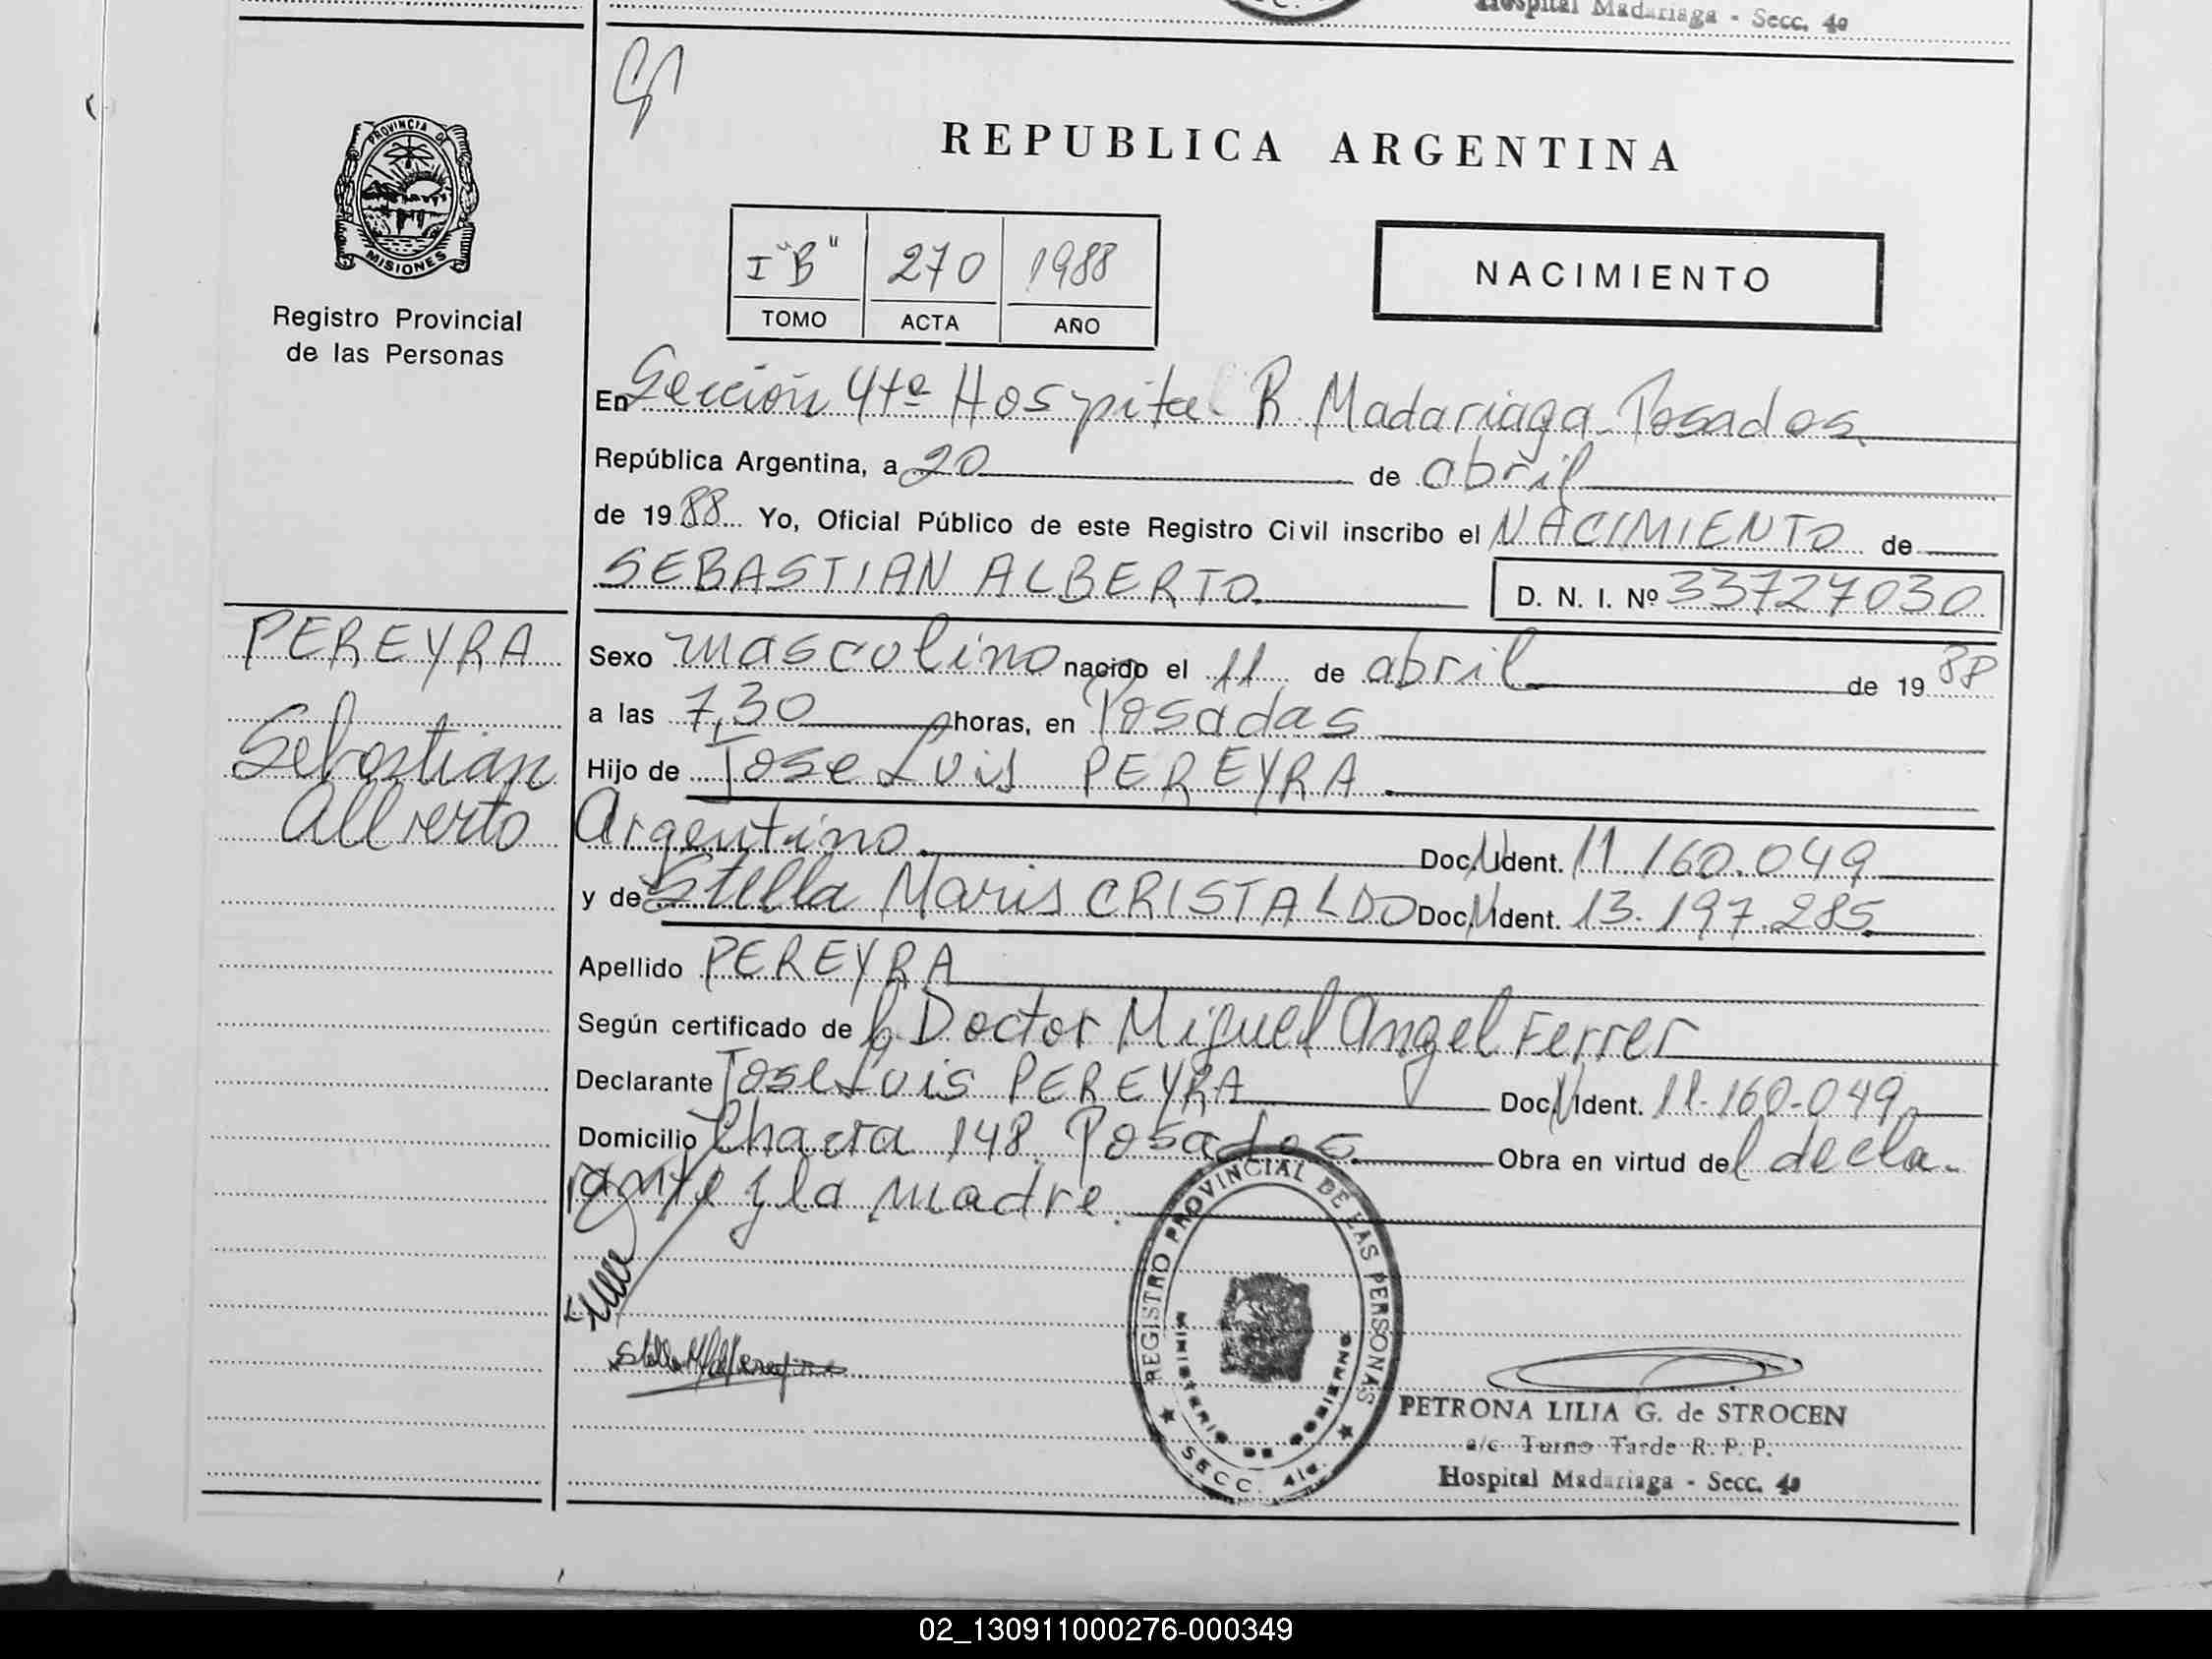 Hospital Madariaga - Secc. 4a
PROVINCIA DE
MISIONES
Registro Provincial
de las Personas
REPUBLICA ARGENTINA
I "B" 270 1988
TOMO ACTA AÑO
NACIMIENTO
En Sección 4ta Hospital R. Madariaga - Posadas
República Argentina, a 20 de abril
de 1988 Yo, Oficial Público de este Registro Civil inscribo el NACIMIENTO de
SEBASTIAN ALBERTO
D. N. I. Nº 33727030
PEREYRA
Sebastian
Alberto
Sexo masculino nacido el 11 de abril de 1988
a las 7,30 horas, en Posadas
Hijo de Jose Luis PEREYRA
Argentino. Doc. Ident. 11.160.049
y de Stella Maris CRISTALDO Doc. Ident. 13.197.285
Apellido PEREYRA
Según certificado del Doctor Miguel Angel Ferrer
Declarante Jose Luis PEREYRA Doc. Ident. 11.160.049
Domicilio Chacra 148. Posadas. Obra en virtud del decla-
rante y la madre.
REGISTRO PROVINCIAL DE LAS PERSONAS
MINISTERIO DE GOBIERNO
SECC. 4ta.
PETRONA LILIA G. de STROCEN
a/c Turno Tarde R. P. P.
Hospital Madariaga - Secc. 4a
02_130911000276-000349